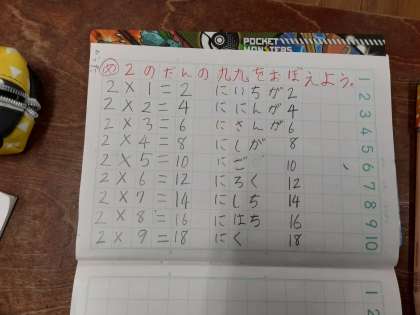 POCKET MONSTERS
め 2のだんの九九をおぼえよう。
2×1=2 にいちが2
2×2=4 ににんが4
2×3=6 にさんが6
2×4=8 にしが 8
2×5=10 にご 10
2×6=12 にろく 12
2×7=14 にしち 14
2×8=16 にはち 16
2×9=18 にく 18
1
2
3
4
5
6
7
8
9
10